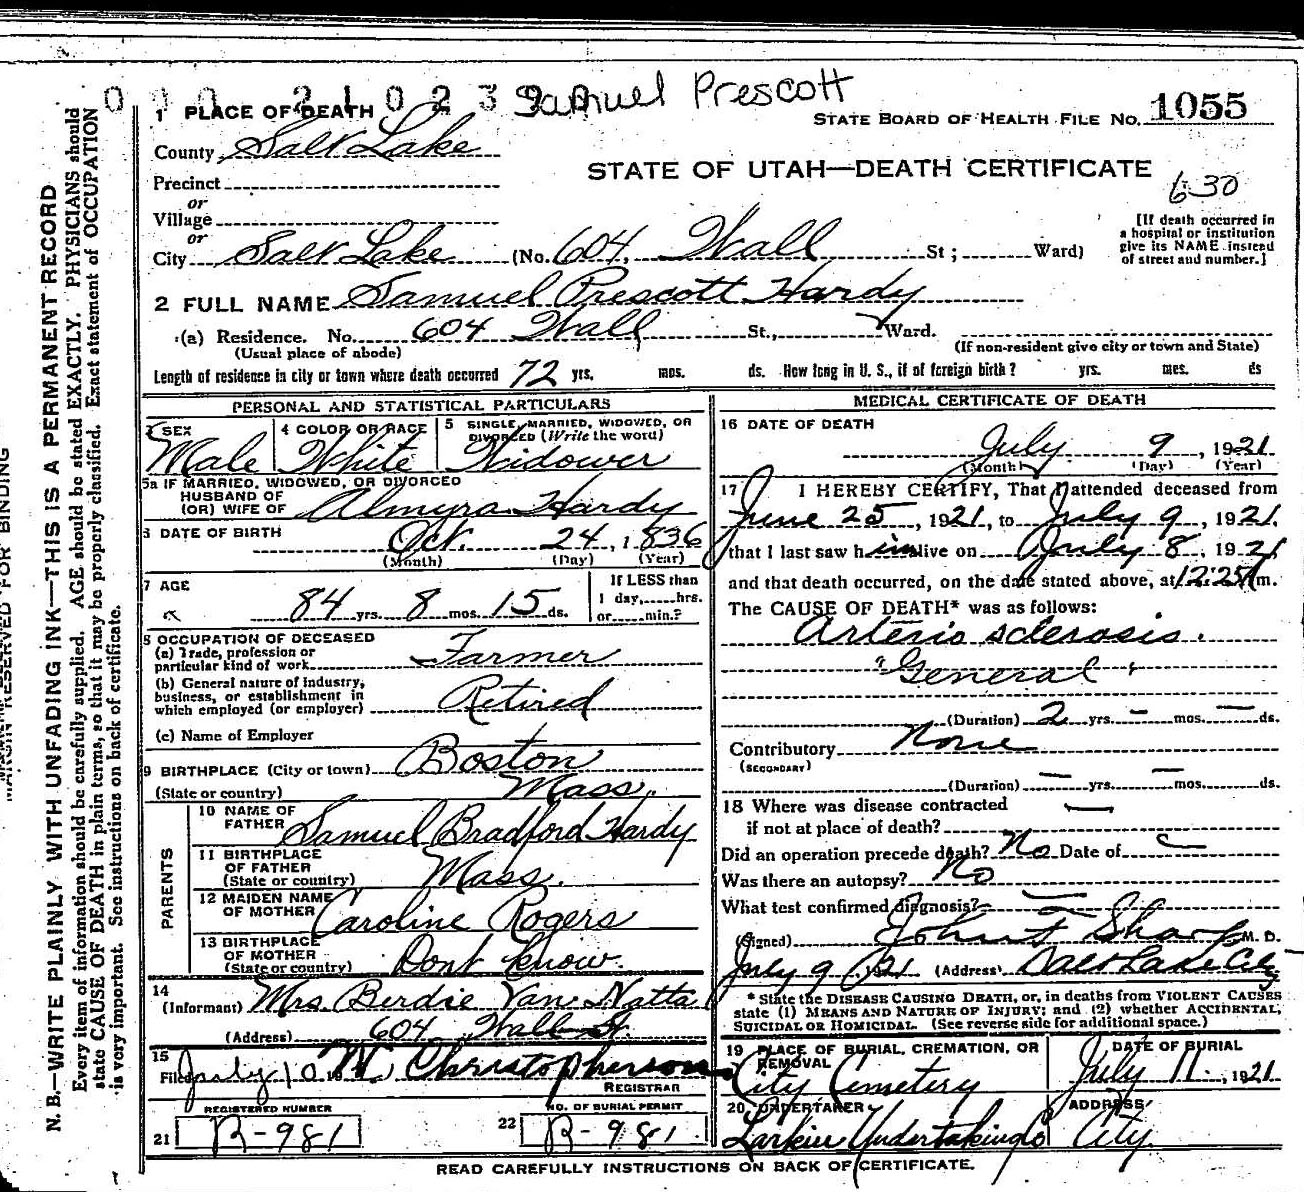 000 2102390
Samuel Prescott
1 PLACE OF DEATH
STATE BOARD OF HEALTH FILE NO. 1055
County Salt Lake
STATE OF UTAH—DEATH CERTIFICATE
630
Precinct
or
Village
or
City Salt Lake (No. 604, Wall St ; Ward)
[If death occurred in
a hospital or institution
give its NAME instead
of street and number.]
2 FULL NAME Samuel Prescott Hardy
(a) Residence. No. 604 Wall St., Ward.
(Usual place of abode) (If non-resident give city or town and State)
Length of residence in city or town where death occurred 72 yrs. mos. ds. How long in U. S., if of foreign birth? yrs. mos. ds
PERSONAL AND STATISTICAL PARTICULARS
3 SEX Male
4 COLOR OR RACE White
5 SINGLE, MARRIED, WIDOWED, OR
DIVORCED (Write the word)
Widower
5a IF MARRIED, WIDOWED, OR DIVORCED
HUSBAND OF
(OR) WIFE OF Almyra Hardy
6 DATE OF BIRTH Oct. 24, 1836
(Month) (Day) (Year)
7 AGE 84 yrs. 8 mos. 15 ds.
If LESS than
1 day, hrs.
or min.?
8 OCCUPATION OF DECEASED
(a) Trade, profession or
particular kind of work Farmer
(b) General nature of industry,
business, or establishment in
which employed (or employer) Retired
(c) Name of Employer
9 BIRTHPLACE (City or town) Boston
(State or country) Mass.
PARENTS
10 NAME OF
FATHER Samuel Bradford Hardy
11 BIRTHPLACE
OF FATHER
(State or country) Mass.
12 MAIDEN NAME
OF MOTHER Caroline Rogers
13 BIRTHPLACE
OF MOTHER
(State or country) Dont know.
14
(Informant) Mrs. Berdie Van Natta
(Address) 604 Wall St.
15
Filed July 10 W. Christopherson
REGISTRAR
REGISTERED NUMBER
21 B-981
NO. OF BURIAL PERMIT
22 B-981
MEDICAL CERTIFICATE OF DEATH
16 DATE OF DEATH
July 9, 1921
(Month) (Day) (Year)
17 I HEREBY CERTIFY, That I attended deceased from
June 25, 1921, to July 9, 1921,
that I last saw him alive on July 8, 1921
and that death occurred, on the date stated above, at 12:25 m.
The CAUSE OF DEATH* was as follows:
Arterio sclerosis.
"General"
(Duration) 2 yrs. — mos. — ds.
Contributory None
(SECONDARY)
(Duration) — yrs. — mos. ds.
18 Where was disease contracted
if not at place of death? —
Did an operation precede death? No Date of
Was there an autopsy? No
What test confirmed diagnosis? —
(Signed) John F Sharp M. D.
July 9, 1921 (Address) Salt Lake City
* State the DISEASE CAUSING DEATH, or, in deaths from VIOLENT CAUSES
state (1) MEANS AND NATURE OF INJURY; and (2) whether ACCIDENTAL,
SUICIDAL OR HOMICIDAL. (See reverse side for additional space.)
19 PLACE OF BURIAL, CREMATION, OR
REMOVAL
City Cemetery
DATE OF BURIAL
July 11, 1921
20 UNDERTAKER
Larkin Undertaking Co
ADDRESS
City.
READ CAREFULLY INSTRUCTIONS ON BACK OF CERTIFICATE.
N. B.—WRITE PLAINLY WITH UNFADING INK—THIS IS A PERMANENT RECORD
Every item of information should be carefully supplied. AGE should be stated EXACTLY. PHYSICIANS should
state CAUSE OF DEATH in plain terms, so that it may be properly classified. Exact statement of OCCUPATION
is very important. See instructions on back of certificate.
MARGIN RESERVED FOR BINDING